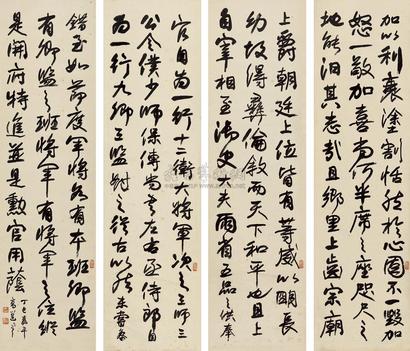 加以利衰塗割恬然於心固不一毀加
怒一敬加喜尚何半席之座咫尺之
地能汩其志哉且鄉里上齒宗廟
上爵朝廷上位皆有等威以明長
幼故得彝倫敘而天下和平也且上
自宰相至御史大夫兩省五品之供奉
官自為一行十二衛大將軍次之三師三
公令僕少師保傅尚書左右丞侍郎自
為一行九卿三監對之從古以然未嘗參
錯至如節度軍將各有本班卿監
有卿監之班將軍有將軍之位縱
是開府特進並是勳官用蔭
丁巳嘉平